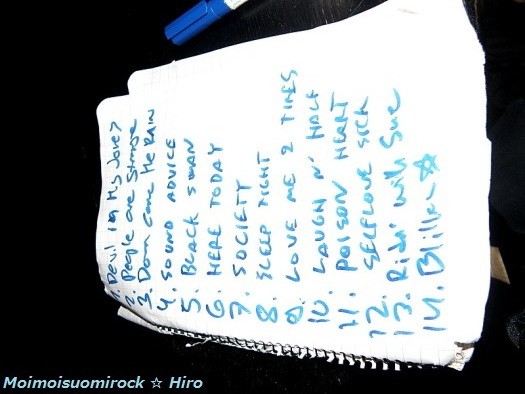 1. Devil in His Jones
2. People are Strange
3. Down Came the RAIN
4. SOUND ADVICE
5. BLACK SWAN
6. HERE TODAY
7. SOCIETY
8. SLEEP TIGHT
9. LOVE ME 2 TIMES
10. LAUGH N' HALF
11. POISON HEART
12. SELFLOVE SICK
13. Ridin' with Sue
14. 
Moimoisuomirock ☆ Hiro